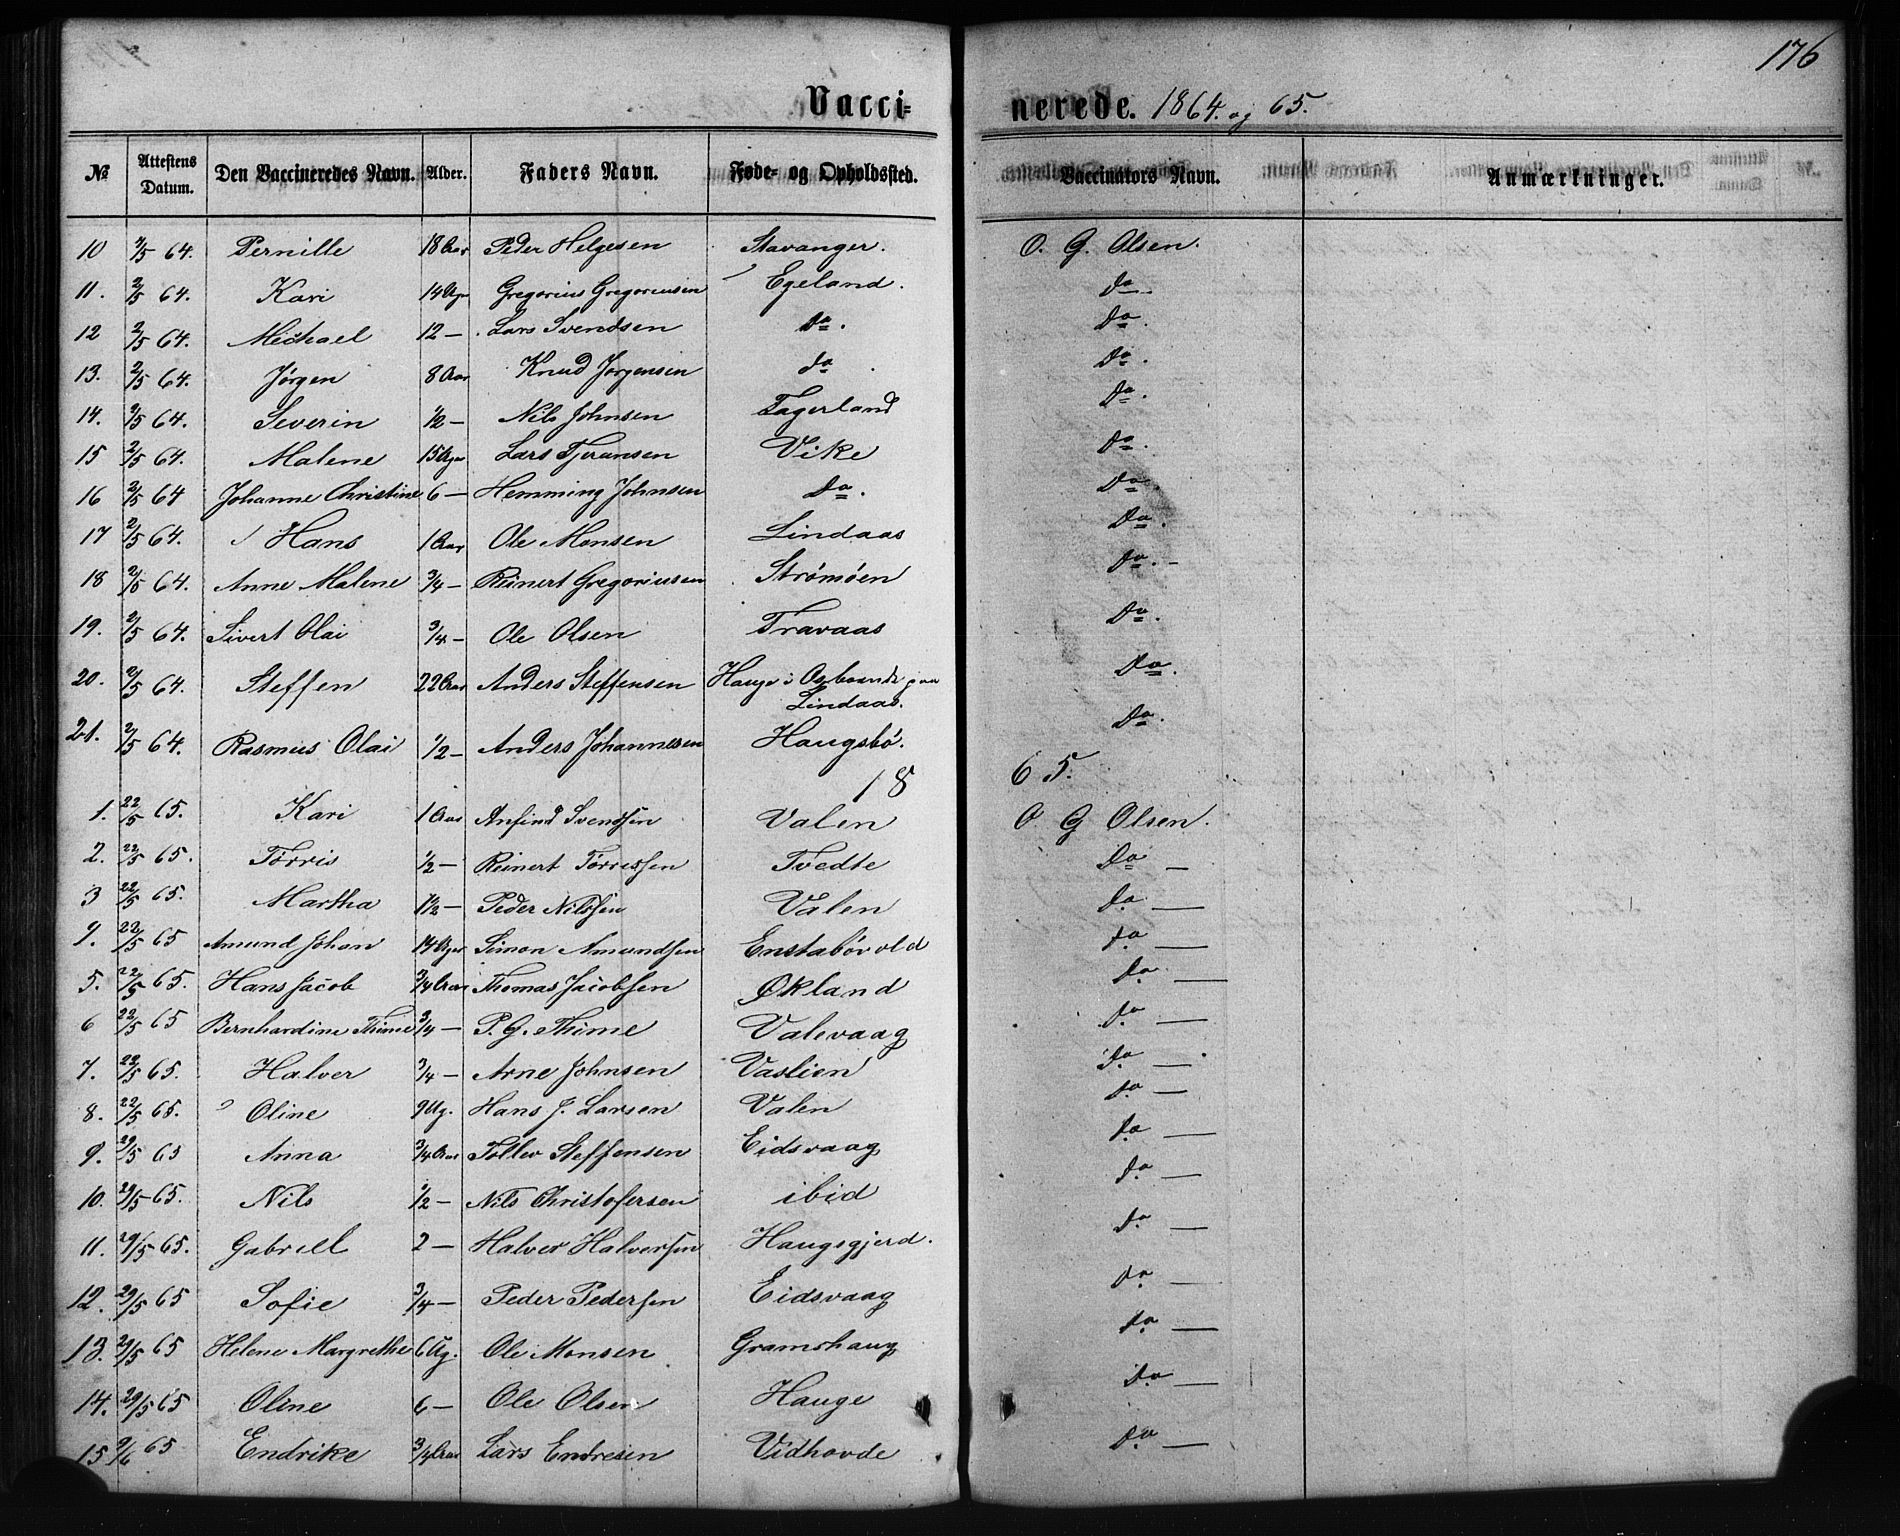 176
Vacci- nerede. 1864. og 65.
№ Attestens Datum. Den Vaccineredes Navn. Alder. Faders Navn. Føde- og Opholdssted. Vaccinators Navn. Anmærkninger.
10 2/5 64. Pernille 18 Aar Peder Helgesen Stavanger. O. G. Olsen.
11. 2/5 64. Kari 14 Uger Gregorius Gregoriusen Egeland. Do.
12 2/5 64. Michael 12 — Lars Svendsen Do. Do.
13. 2/5 64. Jørgen 8 Aar Knud Jørgensen do. Do.
14. 2/5 64. Severin 1/2 — Nils Johnsen Fagerland Do.
15 2/5 64. Malene 15 Uger Lars Tjeransen Vike Do.
16 2/5 64 Johanne Christine 6 — Hemming Johnsen Do. Do.
17 2/5 64. Hans 1 Aar Ole Monsen Lindaas Do.
18 2/5 64. Anne Malene 3/4 — Reinert Gregoriusen Strømøen Do. -
19. 2/5 64. Sivert Olai 3/4 — Ole Olsen Travaas Do.
20. 2/5 64. Steffen 22 Aar Anders Steffensen Hauge i paa Lindaas. Do.
21. 2/5 64. Rasmus Olai 1/2 — Anders Johannesen Haugsbø. Do.
18 65.
1. 22/5 65. Kari 1 Aar Anfind Svendsen Valen O G Olsen.
2. 22/5 65. Tørris 1/2 — Reinert Tørressen Tvedte Do —
3 22/5 65. Martha 1 1/2 — Peder Nilssen Valen Do. —
4. 22/5 65 Amund Johan 14 Uger Simon Amundsen Enstabøvold do. —
5. 22/5 65. Hans Jacob 3/4 Aar Thomas Jacobsen Økland Do. —
6 22/5 65 Bernhardine Thime 3/4 — P. G. Thime Valevaag do. —
7. 22/5 65. Halver 3/4 — Arne Johnsen Vaslien do. —
8. 22/5 65. Oline 9 Ug. Hans J. Larsen Valen do. —
9. 29/5 65 Anna 3/4 Aar Tollev Steffensen Eidsvaag do. —
10. 29/5 65. Nils 1/2 — Nils Christofersen ibid do. —
11. 29/5 65. Gabriel 2 — Halver Halversen Haugsgjerd. do. —
12. 29/5 65 Sofie 3/4 — Peder Pedersen Eidsvaag do. —
13. 29/5 65 Helene Margrethe 6 Ug. Ole Monsen Gramshaug do. —
14. 29/5 65 Oline 6 — Ole Olsen Hauge do. —
15 9/6 65 Endrike 3/4 Aar Lars Endresen Vidhovde do. —